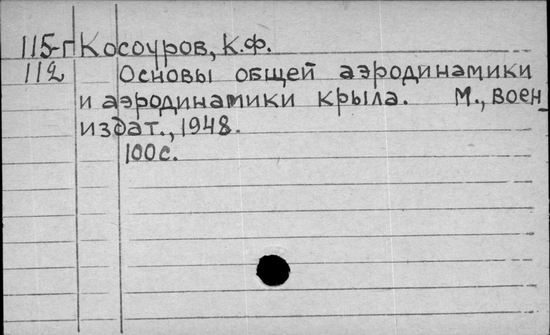 115-г Косоуров, К.Ф.
112 Основы общей аэродинамики
и аэродинамики крыла. М., Воен_
издат., 1948.
100 с.